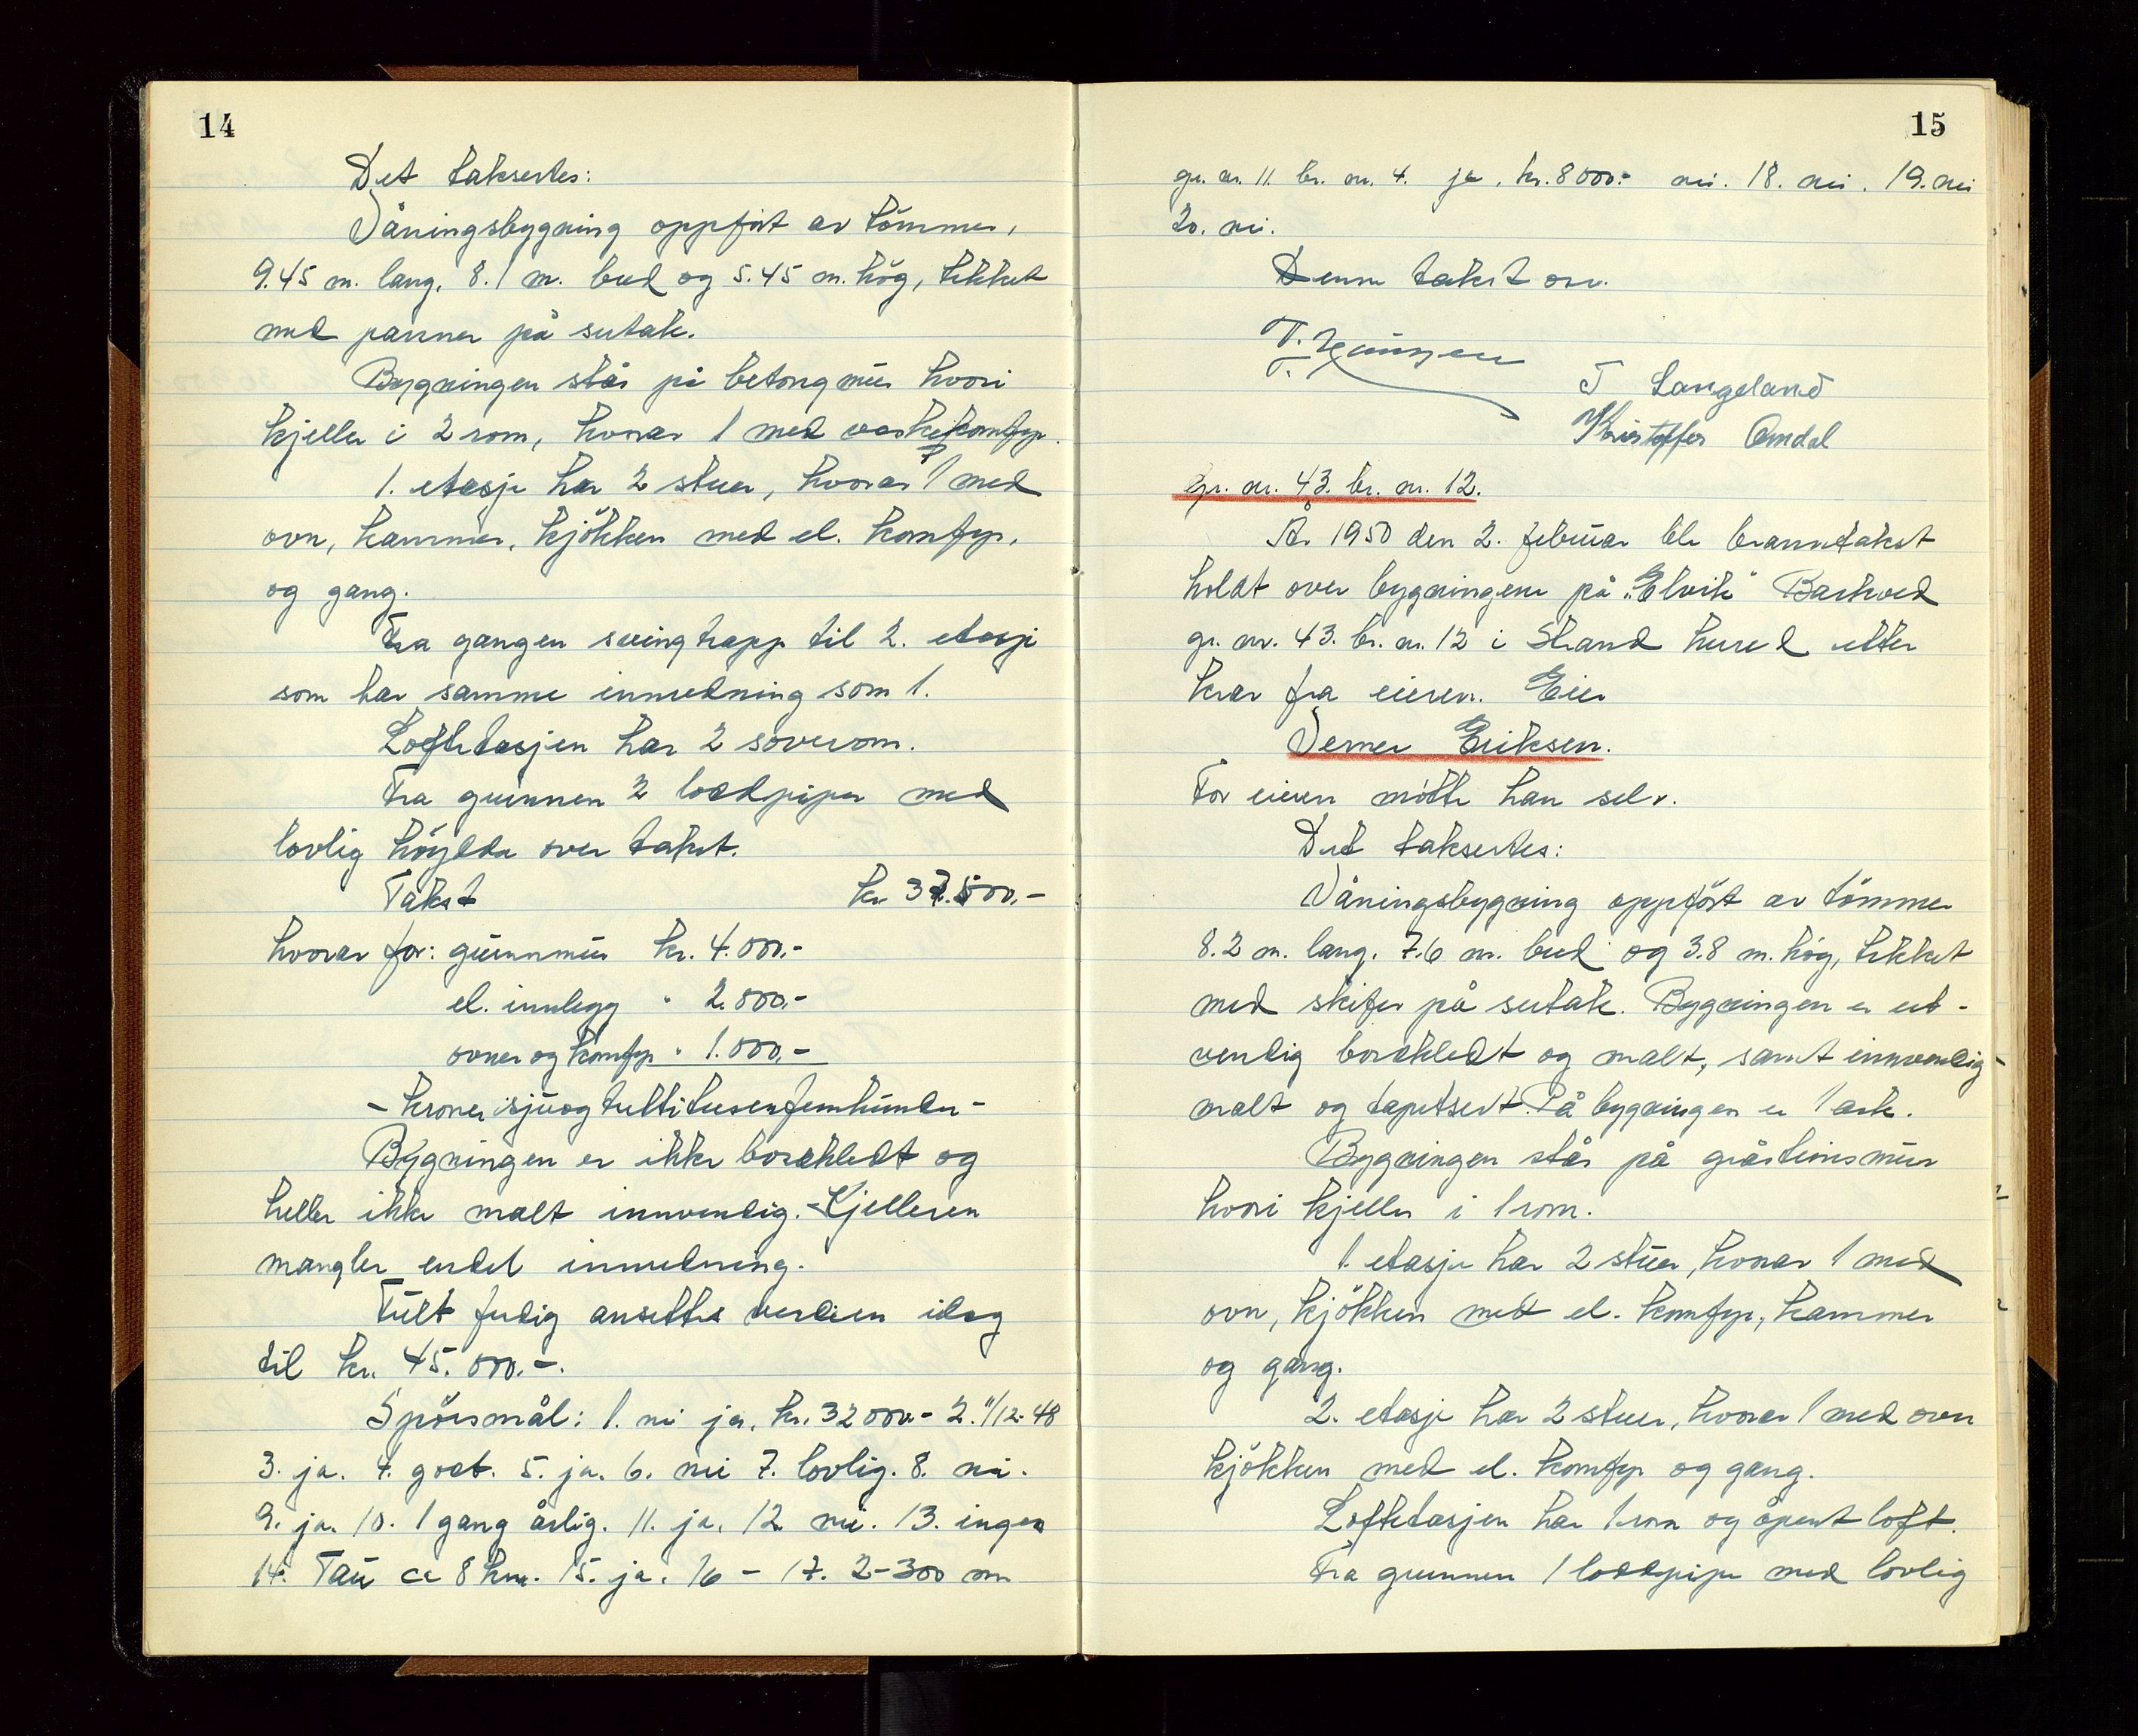 14
Det taksertes:
Våningsbygning oppført av tömmer,
9.45 m. lang, 8.1 m. bred og 5.45 m. hög, tekket
med panner på sutak.
Bygningen står på betongmur hvori
kjeller i 2 rom, hvorav 1 med vaskekomfyr.
1. etasje har 2 stuer, hvorav 1 med
ovn, kammer, kjökken med el. komfyr,
og gang.
Fra gangen svingtrapp til 2. etasje
som har samme innredning som 1.
Loftetasjen har 2 soverom.
Fra grunnen 2 loddpiper med
lovlig höyde over taket.
Takst kr 37.500.-
hvorav for: grunnmur kr. 4.000.-
el. innlegg " 2.000.-
ovner og komfyr " 1.000.-
- kroner sjuogtrettitusenfemhundre -
Bygningen er ikke bordkledt og
heller ikke malt innvendig. - Kjelleren
mangler endel innredning.
Fullt ferdig ansettes verdien idag
til kr. 45.000.-.
Spörsmål: 1. nei ja, kr. 32000.- 2. 11/12-48
3. ja. 4. godt. 5. ja. 6. nei 7. lovlig. 8. nei.
9. ja. 10. 1 gang årlig. 11. ja. 12 nei. 13. ingen
14. Tau ca 8 km. 15. ja. 16 - 17. 2-300 m
15
gr. nr. 11. br. nr. 4. ja, kr. 8000.- nei. 18. nei. 19. nei
20. nei.
Denne takst osv.
T. Langeland
Kristoffer Omdal
Gr. nr. 43. br. nr. 12.
År 1950 den 2. februar ble branntakst
holdt over bygningene på "Elvik" Barkved
gr. nr. 43. br. nr. 12 i Strand herred etter
krav fra eieren. Eier
Verner Eriksen.
For eieren mötte han selv.
Det taksertes:
Våningsbygning oppfört av tömmer
8.2 m. lang. 7.6 m. bred og 3.8 m. hög, tekket
med skifer på sutak. Bygningen er ut-
vendig bordkledt og malt, samt innvendig
malt og tapetsert. På bygningen er 1 ark.
Bygningen står på gråsteinsmur
hvori kjeller i 1 rom.
1. etasje har 2 stuer, hvorav 1 med
ovn, kjökken med el. komfyr, kammer
og gang.
2. etasje har 2 stuer, hvorav 1 med ovn
kjökken med el. komfyr og gang.
Loftetasjen har 1 rom og åpent loft.
Fra grunnen 1 loddpipe med lovlig